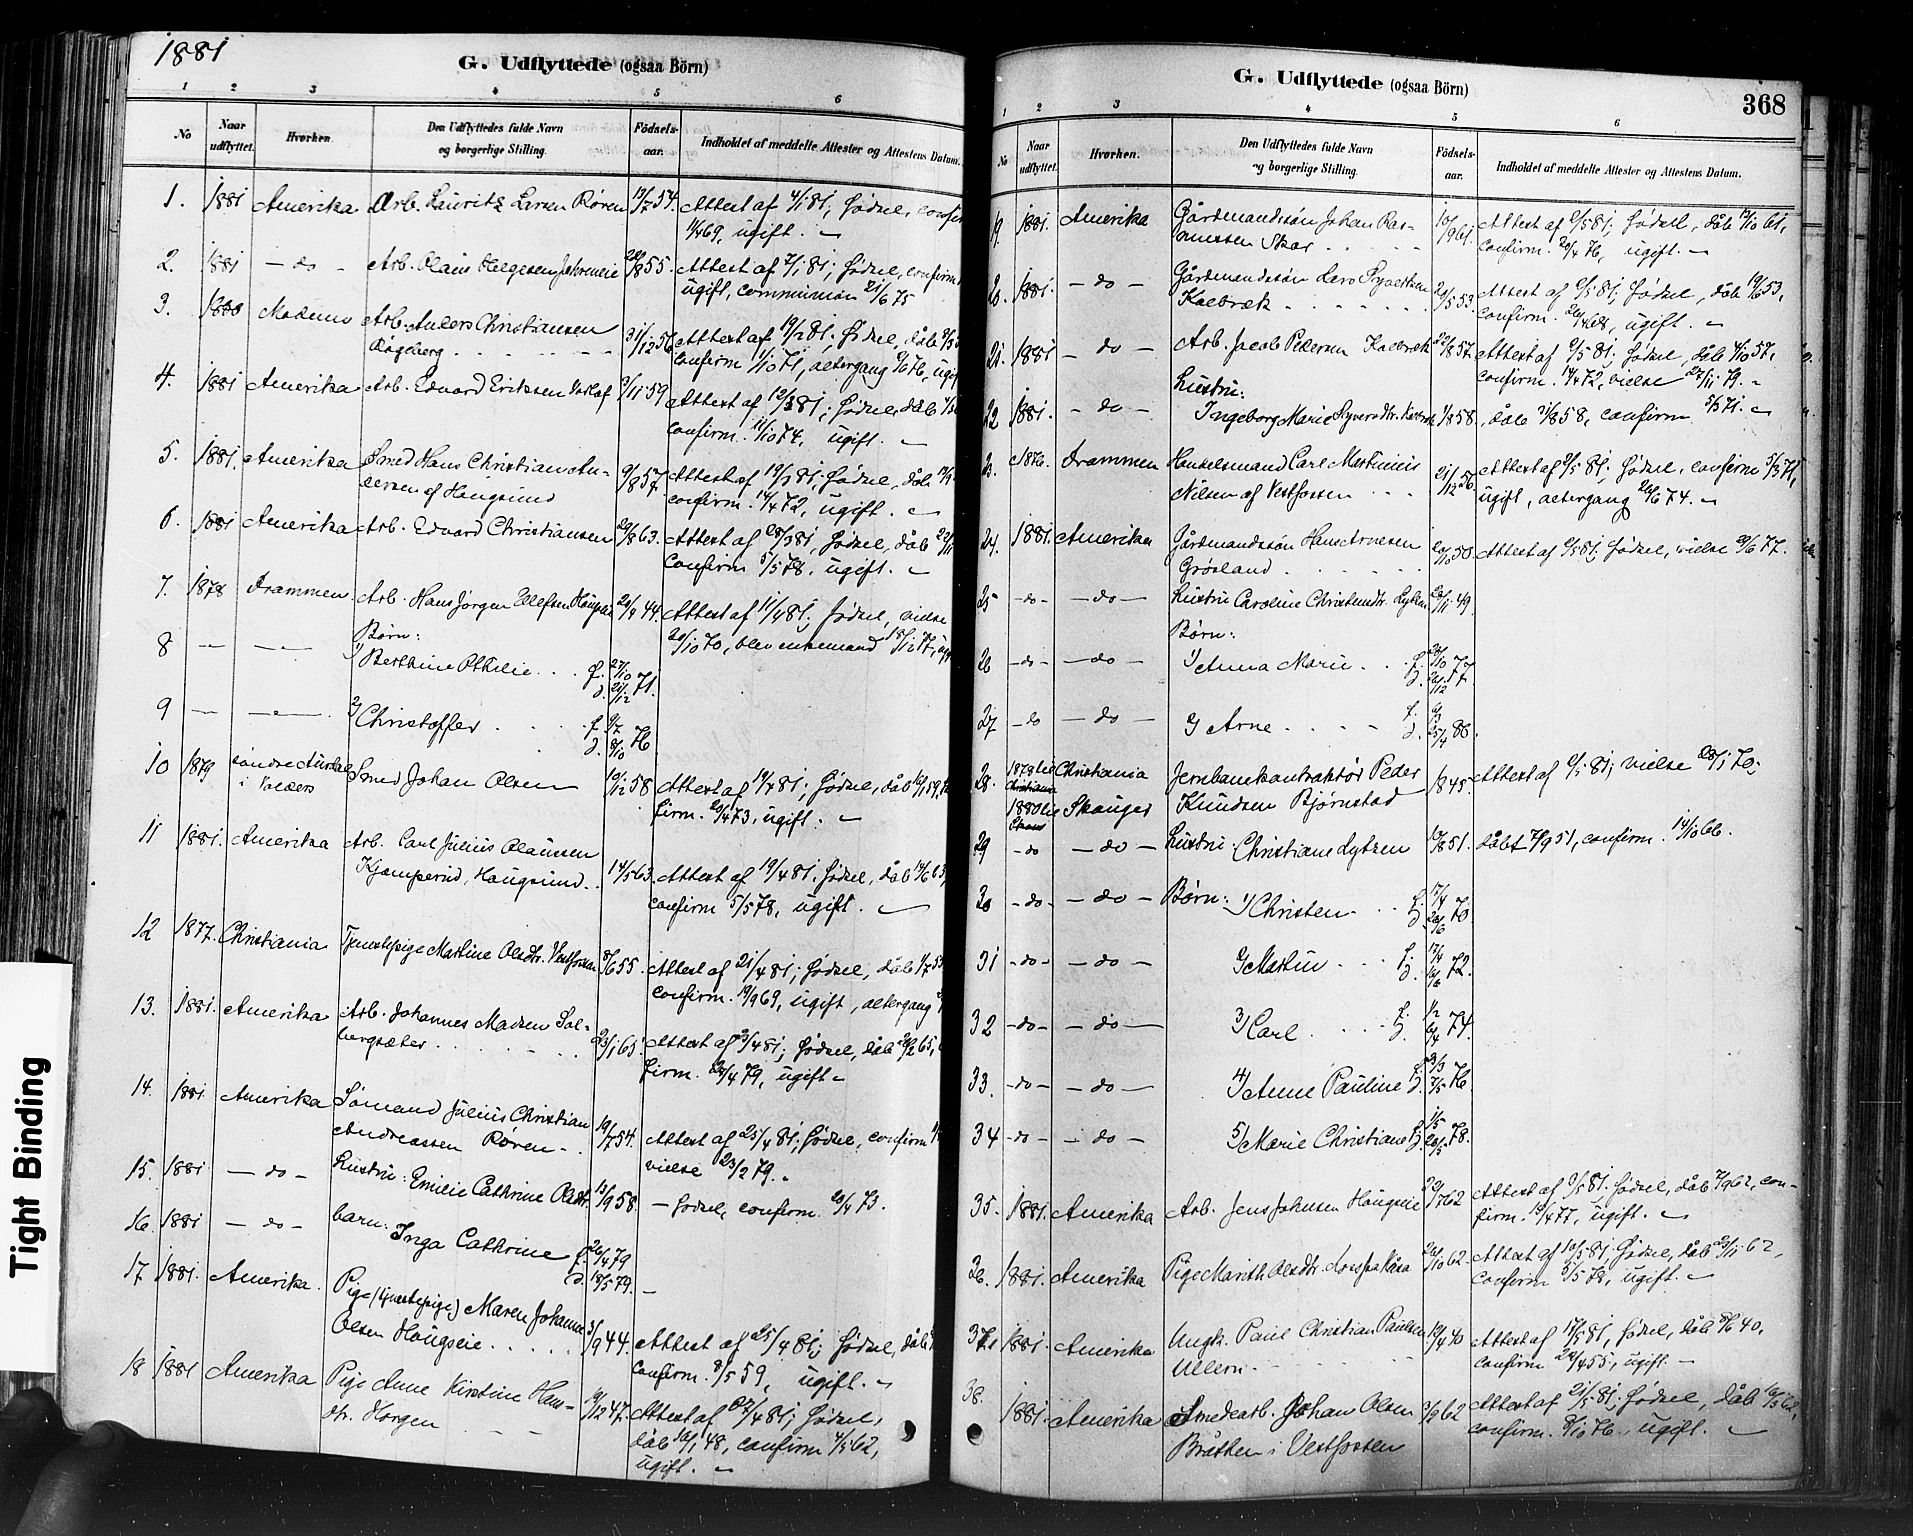 1881
G. Udflyttede (ogsaa Börn)
1 2 3 4 5 6
No
Naar udflyttet.
Hvorhen.
Den Udflyttedes fulde Navn og borgerlige Stilling.
Födsels-aar.
Indholdet af meddelte Attester og Attestens Datum.
1. 1881 Amerika Arb. Lauritz Larsen Røren 17/7 54. Attest af 4/1 81, fødsel, confir
69, ugift.
2. 1881 - do - Arb. Olaus Helgesen 55. Attest af 7/1 81; fødsel, confirm
ugift, communion 21/6 75
3. Modums Arb. Anders Christiansen
31/12 56 Attest af 19/2 81; fødsel, dåb
confirm 1/10 71, altergang 76, ugift
4. 1881 Amerika Arb. Edvard Eriksen 3/11 59 Attest af 12/3 81; fødsel, dåb
confirm. 11/10 74, ugift.
5. 1881. Amerika Smed Hans Christian An-
dersen af Hougsund 9/8 57. Attest af 19/3 81; fødsel, dåb
confirm. 14/4 72, ugift.
6. 1881 Amerika Arb. Edvard Christiansen 29/8 63. Attest af 28/3 81, fødsel, dåb 22/11
Confirm 5/5 78, ugift.
7. 1878 Drammen Arb. Hans Jørgen Ellefsen 44. Attest af 11/4 81; fødsel, vielse
Børn: 20/10 70, blev enkemand
8 1/ Berthine Othilie f. 27/10
d. 21/12 71.
9 2/ Christoffer f. 9/7
d. 8/10 76
10 1879 Søndre
i Valders
Smed Johan Olsen 10/12 58 Attest af 19/4 81, fødsel, dåb
firm. 20/4 73, ugift.
11 1881. Amerika Arb. Carl Julius Olaussen
Kjomperud, Hougsund 14/5 63. Attest af 19/4 81; fødsel, dåb 14/6 63,
confirm 5/5 78, ugift.
12 1877. Christiania Tjenestepige Martine Olsdtr. Vestfossen 8/6 55. Attest af 21/4 81; fødsel, dåb 1/7 55
confirm. 19/9 69, ugift, altergang
13. 1881. Amerika Arb. Johannes Madsen Sol-
bergsæter 23/1 65. Attest af 81; fødsel, dåb 65,
firm. 79, ugift
14. 1881 Amerika Sømand Julius Christian
Andreassen Røren 19/7 54. Attest af 25/4 81; fødsel, confirm
vielse 23/2 79.
15. 1881 - do - Hustru: Emilie Cathrine Olsdtr. 13/9 58. - fødsel, confirm. 20/4 73.
16. 1881 - do - barn: Inga Cathrine f. 26/4 79
d. 18/5 79.
17 1881. Amerika. Pige (tjenestepige) Maren Johanne
Olsen Hougseie 3/9 44. Attest af 25/4 81; fødsel, dåb
confirm. 8/5 59, ugift.
18 1881 Amerika Pige Anne Kirstine Hans-
dtr. Horgen 9/12 47. Attest af 27/4 81; fødsel,
dåb 16/1 48, confirm 4/5 62,
ugift.
Tight Binding
G. Udflyttede (ogsaa Börn)
368
1 2 3 4 5 6
No
Naar udflyttet.
Hvorhen.
Den Udflyttedes fulde Navn og borgerlige Stilling.
Födsels-aar.
Indholdet af meddelte Attester og Attestens Datum.
19. 1881. Amerika Gårdmandssøn Johan Ras-
mussen Skar 10/9 61. Attest af 81; fødsel, dåb 13/10 61,
confirm. 20/4 76, ugift.
20. 1881. - do - Gårdmandssøn Lars
Kolbræk 53. Attest af 81; fødsel, dåb 19/6 53,
confirm. 26/4 68, ugift.
21. 1881 - do - Arb. Jacob Pedersen Kolbræk 22/8 57. Attest af 81; fødsel, dåb 4/10 57,
confirm. 14/4 72, vielse 27/11 79.
22 1881. - do - Hustru:
Ingeborg Marie 58. dåb 58, confirm 71.
23. 1876. Drammen Handelsmand Carl Martinius
Nilsen af Vestfossen 21/12 56. Attest af 81; fødsel, confirm 71,
ugift, altergang 74.
24. 1881. Amerika Gårdmandssøn Hans Arnesen
Grøsland 50. Attest af 81; fødsel, vielse 77.
25 - do - - do - Hustru Caroline 49.
Børn:
26 - do - - do - 1/ Anna Marie f. 28/10 77
d. 26/12
27 - do - - do - 2/ Arne f. 9/3
d. 25/4 80.
28. 1878 til Christiania Jernbanekontraktør Peder
1880 til Skauger Knudsen Bjørnstad 45. Attest af 81; vielse 28/1 70.
29 - do - do - Hustru: Christiane Lytzen 51. døbt 7/9 51, confirm. 14/10 66.
30 - do - - do - Børn: 1/ Christen f. 17/4 70
d. 26/6
31 - do - - do - 2/ Martin f. 17/4
d. 16/6 72.
32 - do - - do - 3/ Carl f. 1/2
d. 6/4 74.
33. - do - - do - 4/ Anne Pauline f. 23/3
d. 7/5 76
34 - do - - do - 5/ Marie Christiane f. 1/5
d. 78.
35. 1881. Amerika Arb. Jens Johnsen Hougseie 29/7 62 Attest af 9/5 81. fødsel, dåb 7/9 62, con-
firm. 77, ugift.
36. 1881. Amerika Pige Marith Olsdtr. 26/10 62. Attest af 10/5 81; fødsel, dåb 23/11 62,
confirm 5/5 78, ugift.
37. 1881. Amerika Ungk. Paul Christian Paulsen
Ullern 19/4 40 Attest af 17/5 81, fødsel, dåb 40,
confirm 55, ugift.
38. 1881. Amerika Smedearb. Johan Olsen
Bråthen i Vestfossen 62 Attest af 21/5 81; fødsel, dåb
confirm. 8/10 76, ugift.